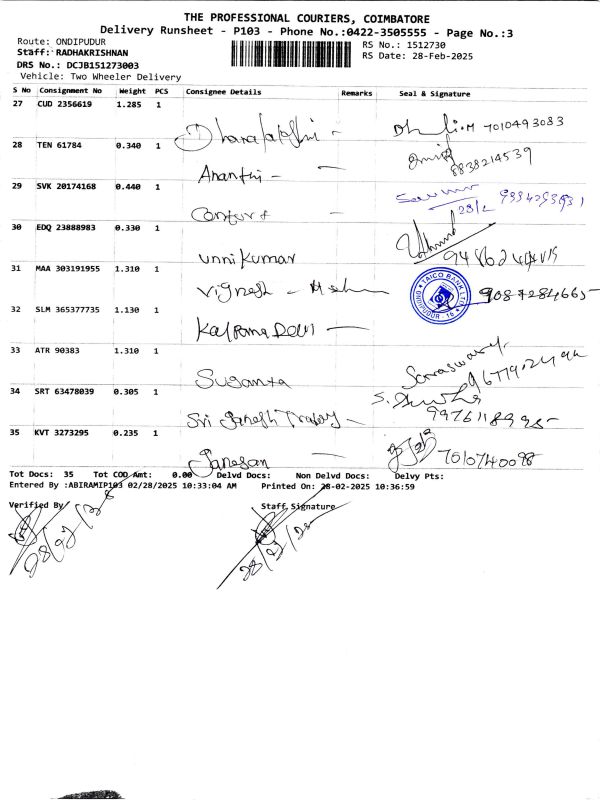 THE PROFESSIONAL COURIERS, COIMBATORE
Delivery Runsheet - P103 - Phone No.:0422-3505555 - Page No.:3
Route: ONDIPUDUR
Staff: RADHAKRISHNAN
RS No.: 1512730
DRS No.: DCJB151273003
RS Date: 28-Feb-2025
Vehicle: Two Wheeler Delivery
S No Consignment No Weight PCS Consignee Details Remarks Seal & Signature
27 CUD 2356619 1.285 1
7010493083
28 TEN 61784 0.340 1 Ananthi -
8838214539
29 SVK 20174168 0.440 1
28/2
30 EDQ 23888983 0.330 1 Unnikumar
31 MAA 303191955 1.310 1 Vignesh -
TAICO BANK LTD. ONDIPUDUR - 16
9087284665
32 SLM 365377735 1.130 1 Kalpana Devi -
33 ATR 90383 1.310 1 Suganya
Saraswathy
34 SRT 63478039 0.305 1 Sri Ganesh -
35 KVT 3273295 0.235 1 Ganesan
7010740098
Tot Docs: 35 Tot COD Amt: 0.00 Delvd Docs: Non Delvd Docs: Delvy Pts:
Entered By :ABIRAMIP103 02/28/2025 10:33:04 AM Printed On: 28-02-2025 10:36:59
Verified By Staff Signature